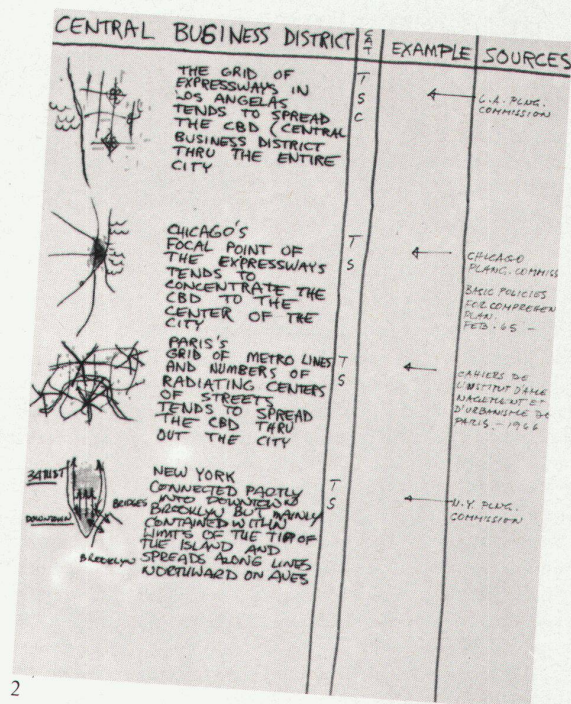 CENTRAL BUSINESS DISTRICT
CAT
EXAMPLE
SOURCES
THE GRID OF
EXPRESSWAYS IN
LOS ANGELAS
TENDS TO SPREAD
THE CBD (CENTRAL
BUSINESS DISTRICT
THRU THE ENTIRE
CITY
T
S
C
L.A. PLNG.
COMMISSION
CHICAGO'S
FOCAL POINT OF
THE EXPRESSWAYS
TENDS TO
CONCENTRATE THE
CBD TO THE
CENTER OF THE
CITY
T
S
CHICAGO
PLANG. COMMISS
BASIC POLICIES
FOR COMPREGEN
PLAN.
FEB. 65 -
PARIS'S
GRID OF METRO LINES
AND NUMBERS OF
RADIATING CENTERS
OF STREETS
TENDS TO SPREAD
THE CBD THRU
OUT THE CITY
T
S
CAHIERS DE
L'INSTITUT D'AME
NAGEMENT ET
D'URBANISME DE
PARIS. - 1966
34TH ST
DOWNTOWN
BRIDGES
BROOKLYN
NEW YORK
CONNECTED PARTLY
INTO DOWNTOWN
BROOKLYN BUT MAINLY
CONTAINED WITHIN
LIMITS OF THE TIP OF
THE ISLAND AND
SPREADS ALONG LINES
NORTHWARD ON AVES
T
S
N.Y. PLNG.
COMMISSION
2